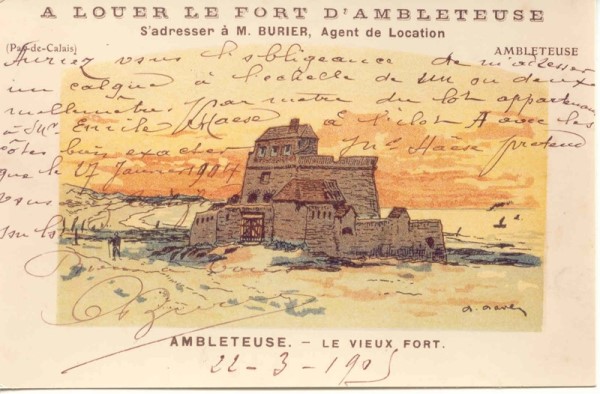 A LOUER LE FORT D'AMBLETEUSE
S'adresser à M. BURIER, Agent de Location
(Pas-de-Calais)
AMBLETEUSE
Auriez vous l'obligeance de m'adresser
un calque à l'échelle de un ou deux
millimètres par mètre du lot appartenant
à Mr Emile Haese à l'îlot A avec les
côtes bien exactes Mr Haese prétend
que le 17 Janvier 1904
vous
sur les
AMBLETEUSE. - LE VIEUX FORT.
22-3-1905